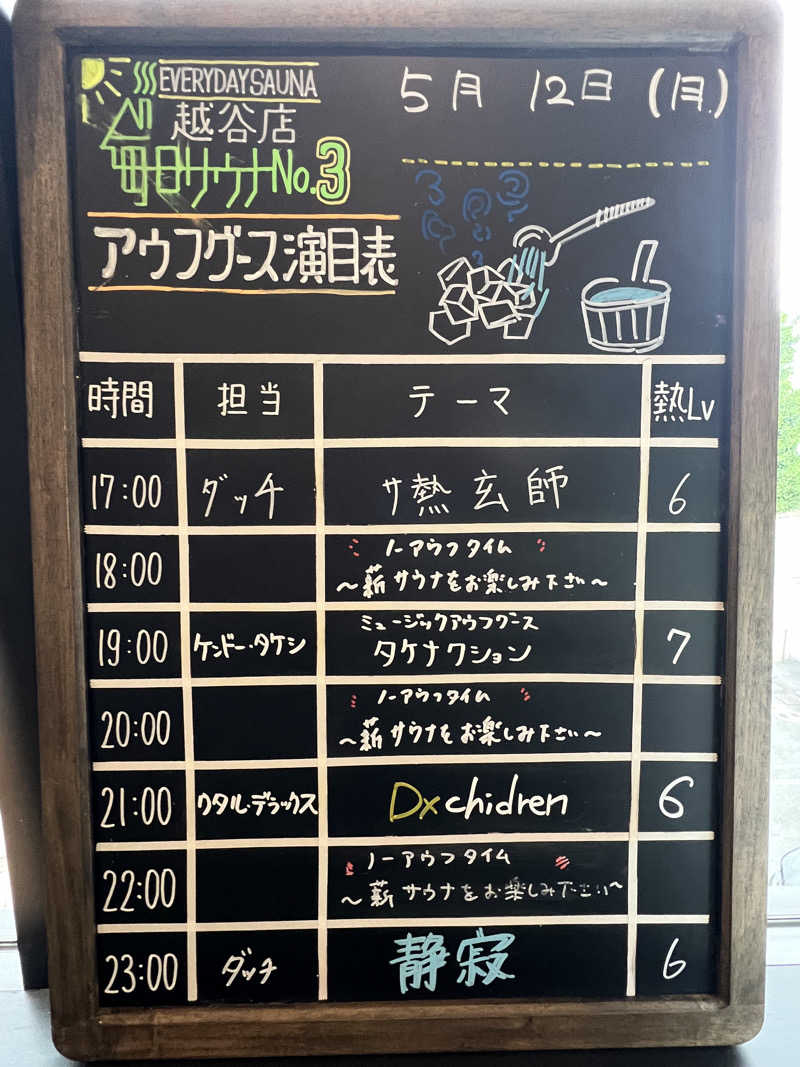 EVERYDAYSAUNA
越谷店
毎日サウナNo.3
5月 12日 (月)
アウフグース演目表
時間 担当 テーマ 熱Lv
17:00 ダッチ サ熱玄師 6
18:00 ノーアウフタイム
~薪サウナをお楽しみ下さい~
19:00 ケンドー・タケシ ミュージックアウフグース
タケナクション 7
20:00 ノーアウフタイム
~薪サウナをお楽しみ下さい~
21:00 ワタル・デラックス Dxchidren 6
22:00 ノーアウフタイム
~薪サウナをお楽しみ下さい~
23:00 ダッチ 静寂 6